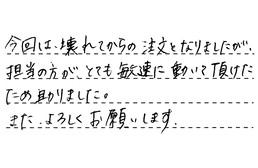 今回は、壊れてからの注文となりましたが、
担当の方が、とても敏速に動いて頂けた
ため助りました。
また、よろしくお願いします。